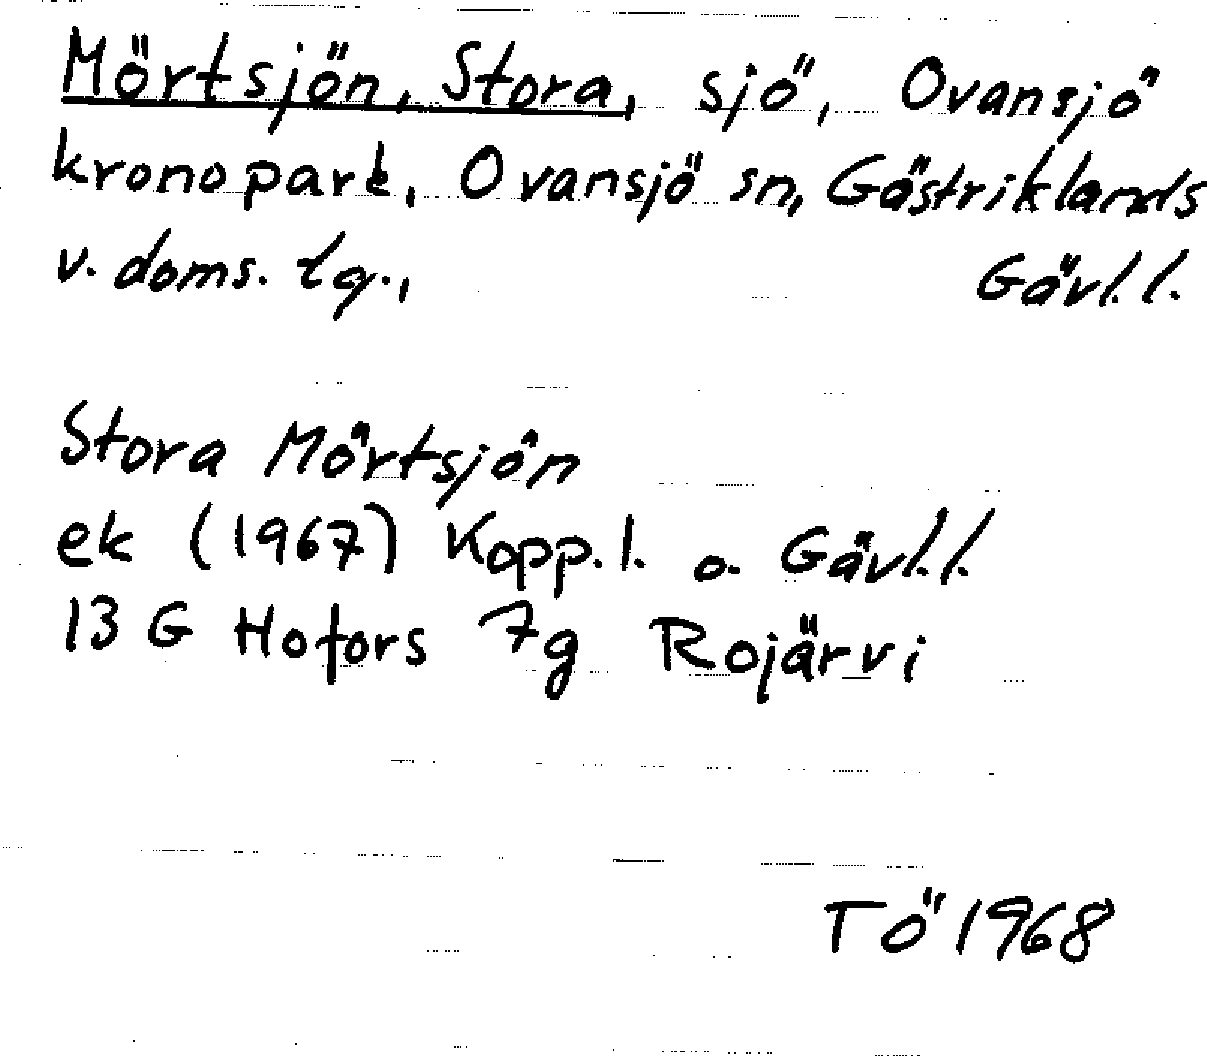 Mörtsjön, Stora, sjö, Ovansjö
kronopark, Ovansjö sn, Gästriklands
v. doms. tg., Gävl.l.
Stora Mörtsjön
ek (1967) Kopp.l. o. Gävl.l.
13 G Hofors 7g Rojärvi
TÖ 1968